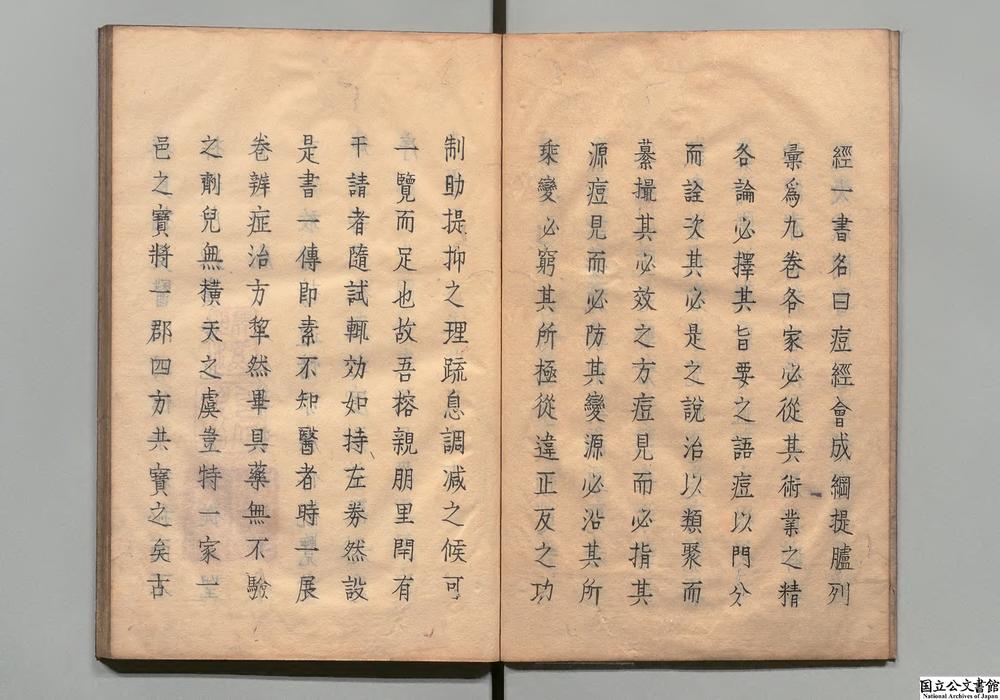 經一書名曰痘經會成綱提臚列
彙爲九卷各家必從其術業之精
各論必擇其旨要之語痘以門分
而詮次其必是之說治以類聚而
纂撮其必效之方痘見而必指其
源痘見而必防其變源必沿其所
乘變必窮其所極從違正反之功
制助提抑之理疏息調減之候可
一覽而足也故吾榕親朋里閈有
干請者隨試輒効如持左券然設
是書一傳即素不知醫者時一展
卷辨症治方犂然畢具藥無不驗
之劑兒無橫夭之虞豈特一家一
邑之寶將一郡四方共寶之矣古
国立公文書館
National Archives of Japan